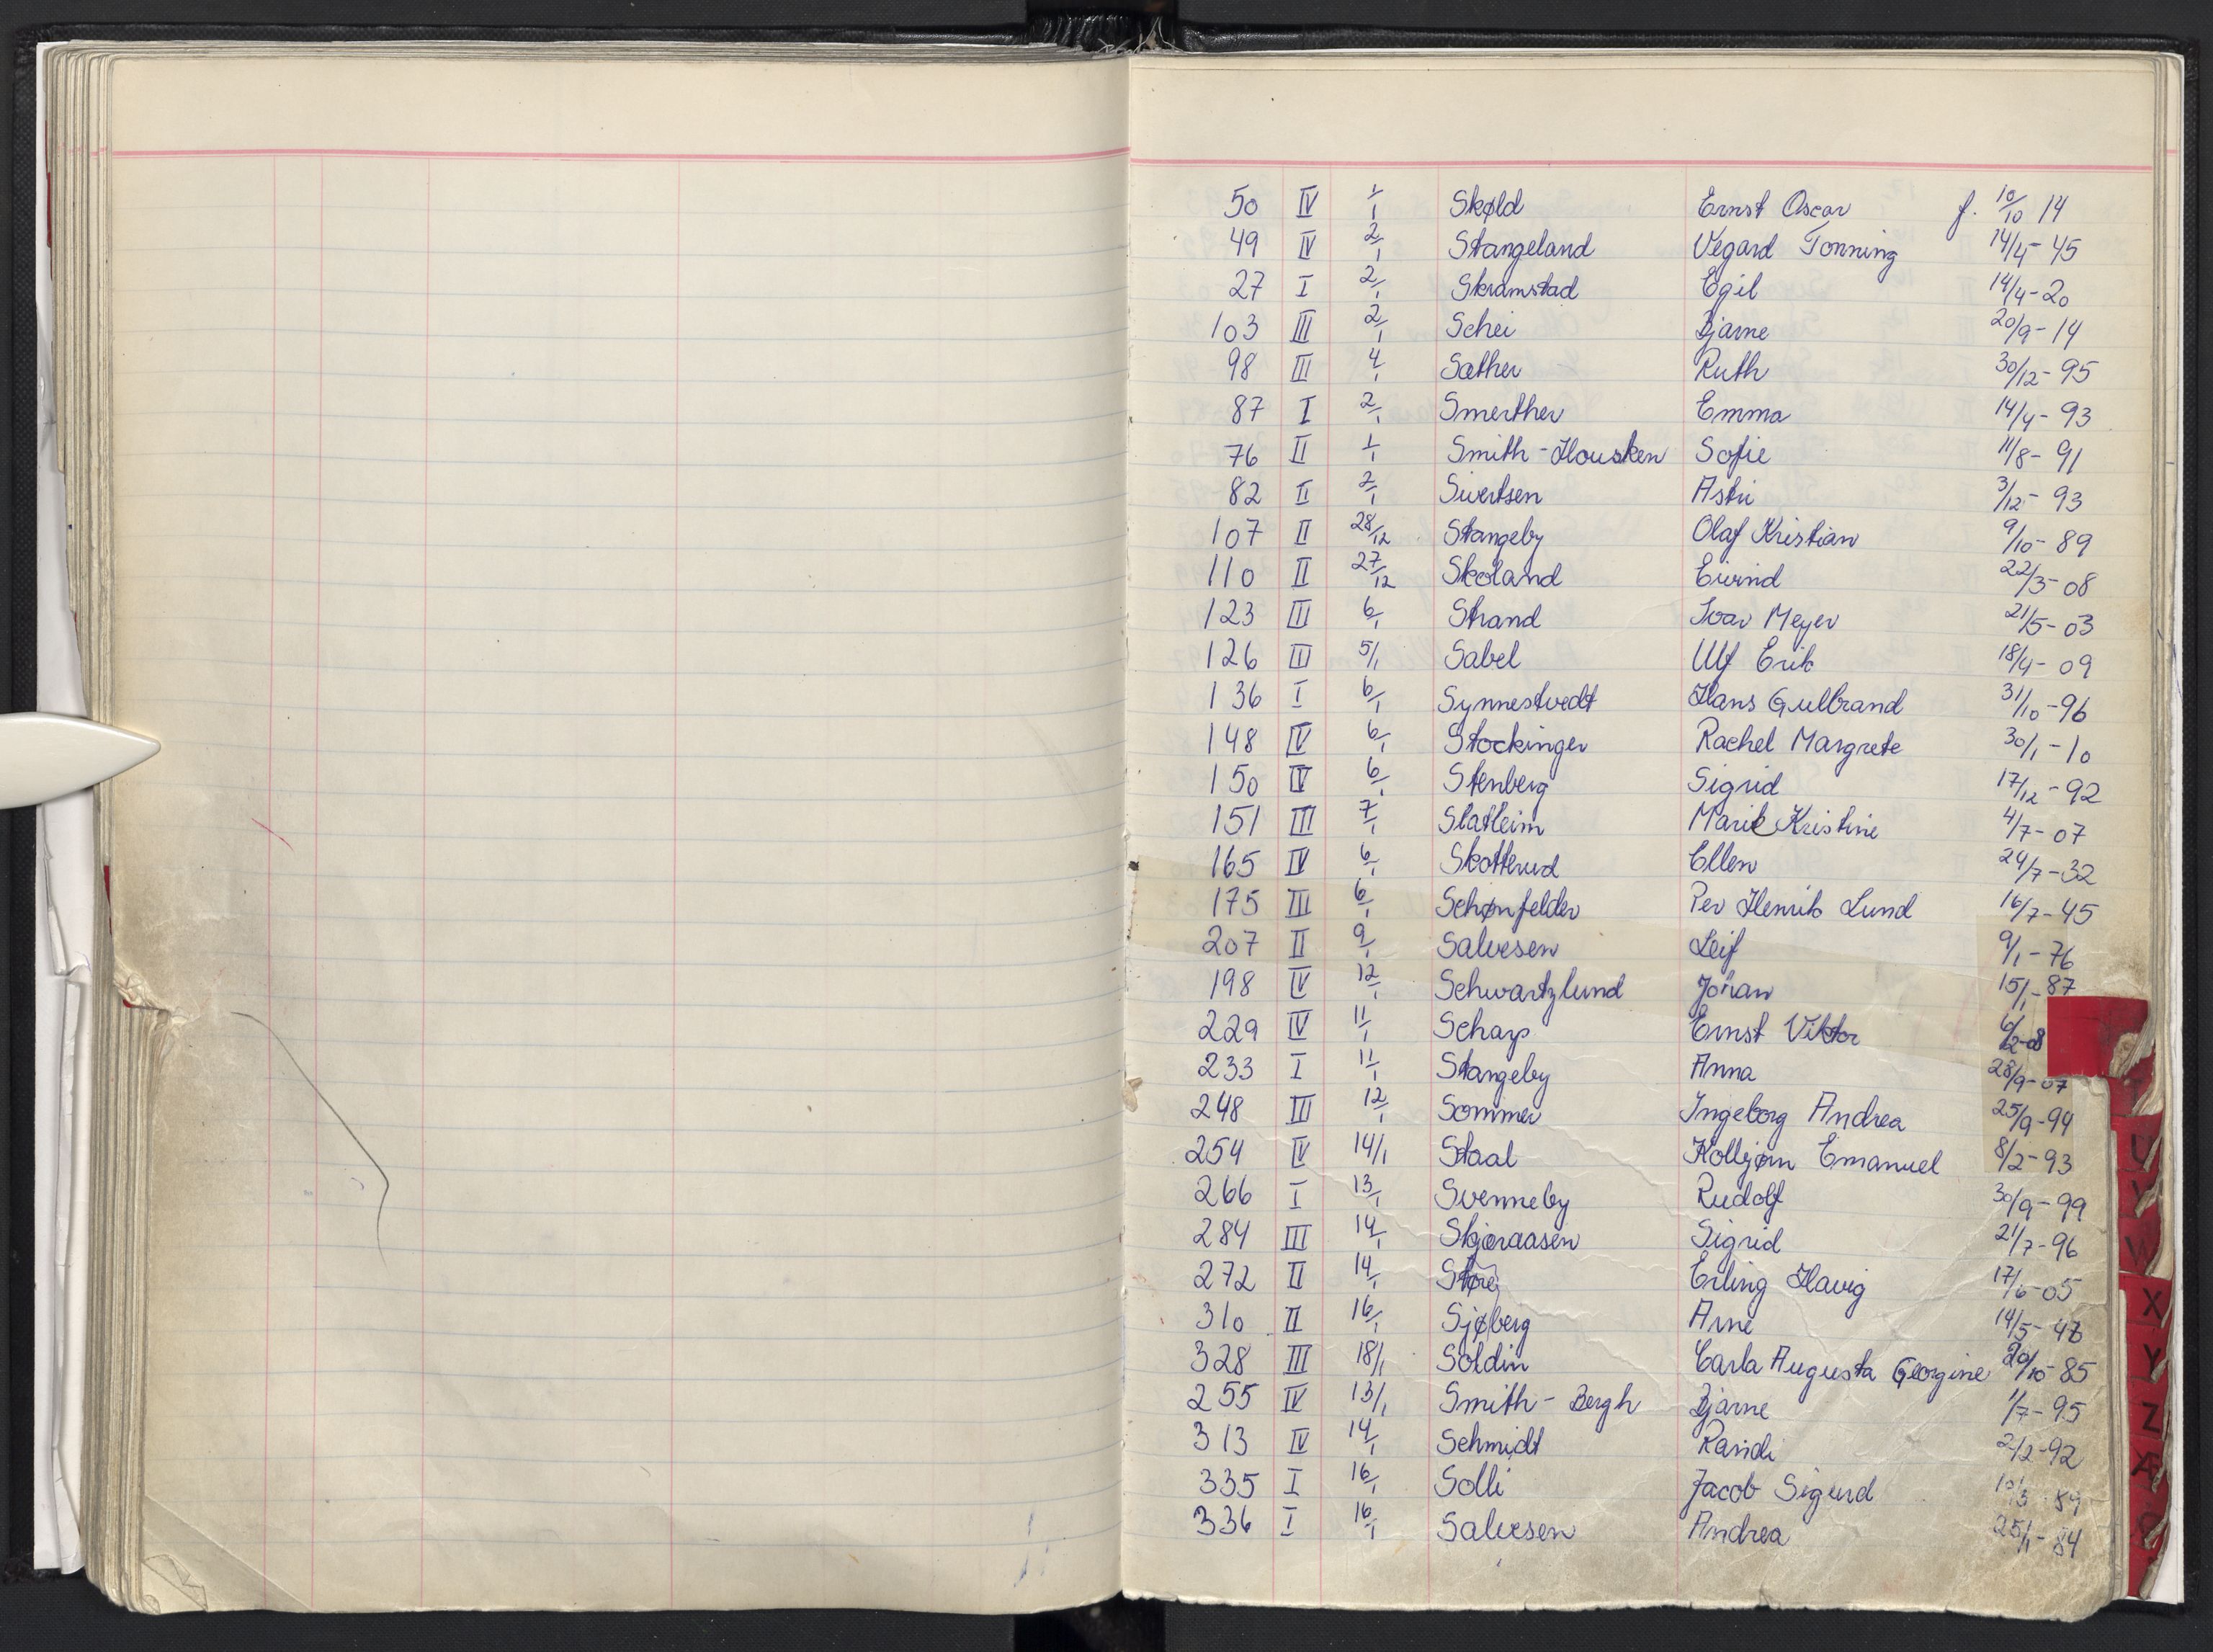 50 IV 1/1 Skøld Ernst Oscar f. 10/10 14
49 IV 2/1 Stangeland Vegard Tonning 14/4-45
27 I 2/1 Skramstad Egil 14/4-20
103 III 2/1 Schei Bjarne 20/9-14
98 III 4/1 Sæther Ruth 30/12-95
87 I 2/1 Smerther Emma 14/4-93
76 II 1/1 Smith-Housken Sofie 11/8-91
82 II 2/1 Sivertsen Astri 3/12-93
107 II 28/12 Stangeby Olaf Kristian 9/10-89
110 II 27/12 Skoland Eivind 22/3-08
123 III 6/1 Strand Ivar Meyer 21/5-03
126 III 5/1 Sabel Ulf Erik 18/4-09
136 I 6/1 Synnestvedt Hans Gulbrand 31/10-96
148 IV 6/1 Stockinger Rachel Margrete 30/1-10
150 IV 6/1 Stenberg Sigrid 17/12-92
151 III 7/1 Slatleim Marie Kristine 4/7-07
165 IV 6/1 Skotterud Ellen 24/7-32
175 III 6/1 Schønfelder Per Henrik Lund 16/7-45
207 II 9/1 Salvesen Leif 9/1-76
198 IV 12/1 Schwartzlund Jöran 15/1-87
229 IV 11/1 Scharp Ernst Viktor 6/2-08
233 I 11/1 Stangeby Anna 28/9-07
248 III 12/1 Sommer Ingeborg Andrea 25/9-94
254 IV 14/1 Staal Kolbjørn Emanuel 8/2-93
266 I 13/1 Svenneby Rudolf 30/9-99
284 III 14/1 Skjøraasen Sigrid 21/7-96
272 II 14/1 Støre Erling Havig 17/6-05
310 II 16/1 Sjøberg Arne 14/5-
328 III 18/1 Soldin Carla Augusta Georgine 20/10-85
255 IV 13/1 Smith-Bergh Bjarne 1/7-95
313 IV 14/1 Schmidt Randi 2/2-92
335 I 16/1 Solli Jacob Sigurd
336 I 16/1 Salvesen Andrea 25/1-84
U
V
W
X
Y
Z
Æ